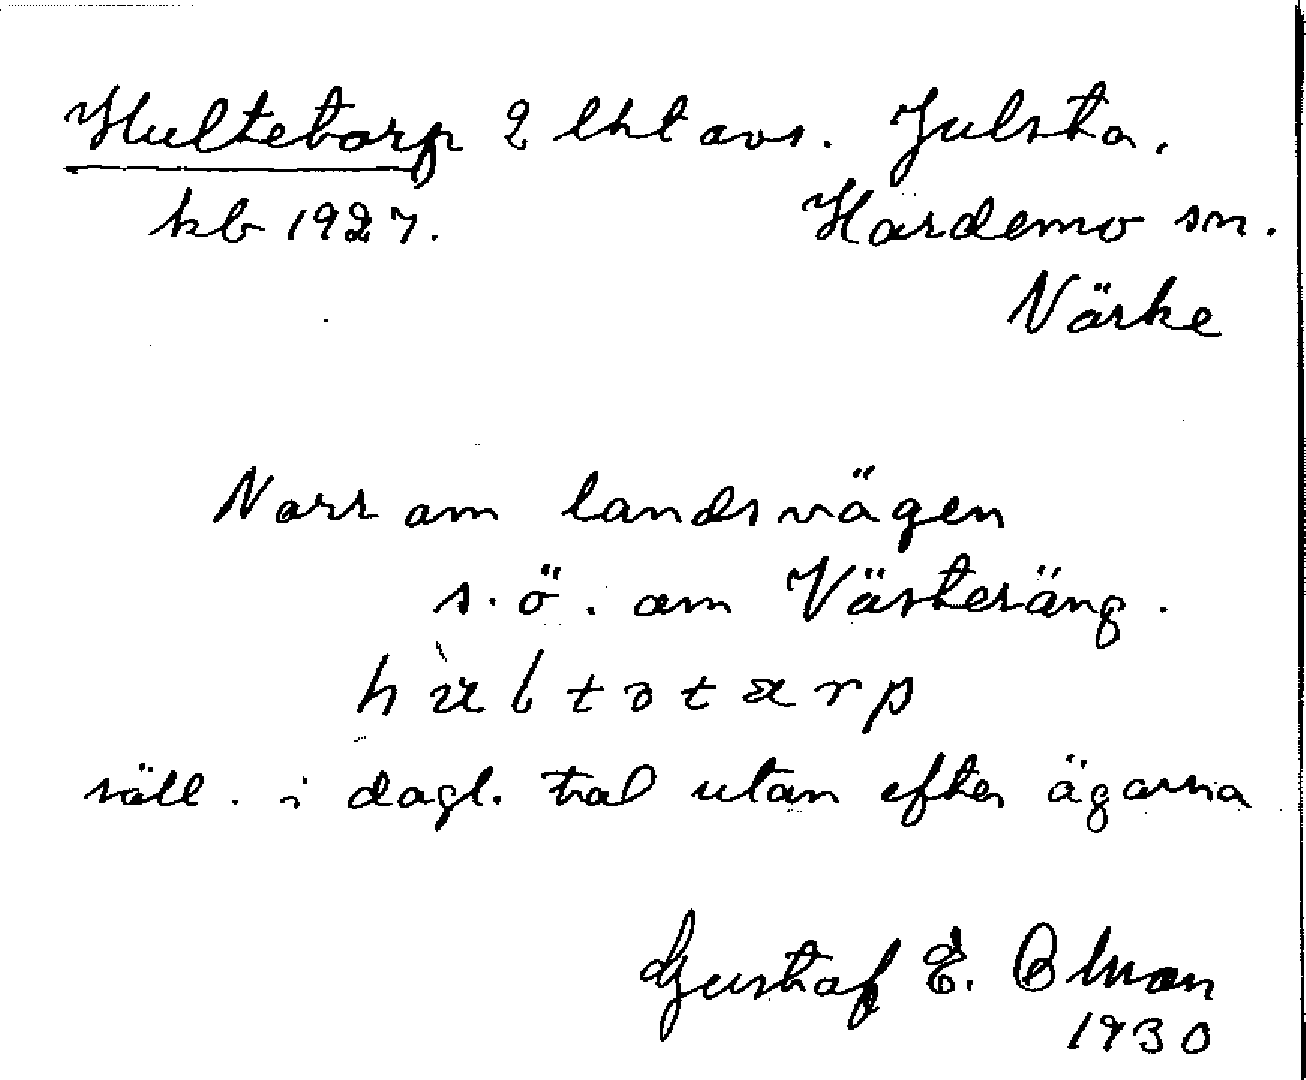 Hultetorp 2 lht avs. Julsta.
kb 1927. Hardemo sn.
Närke
Norr om landsvägen
s.ö. om Västeräng.
hùltətarp
säll. i dagl. tal utan efter ägarna
Gustaf E.
1930